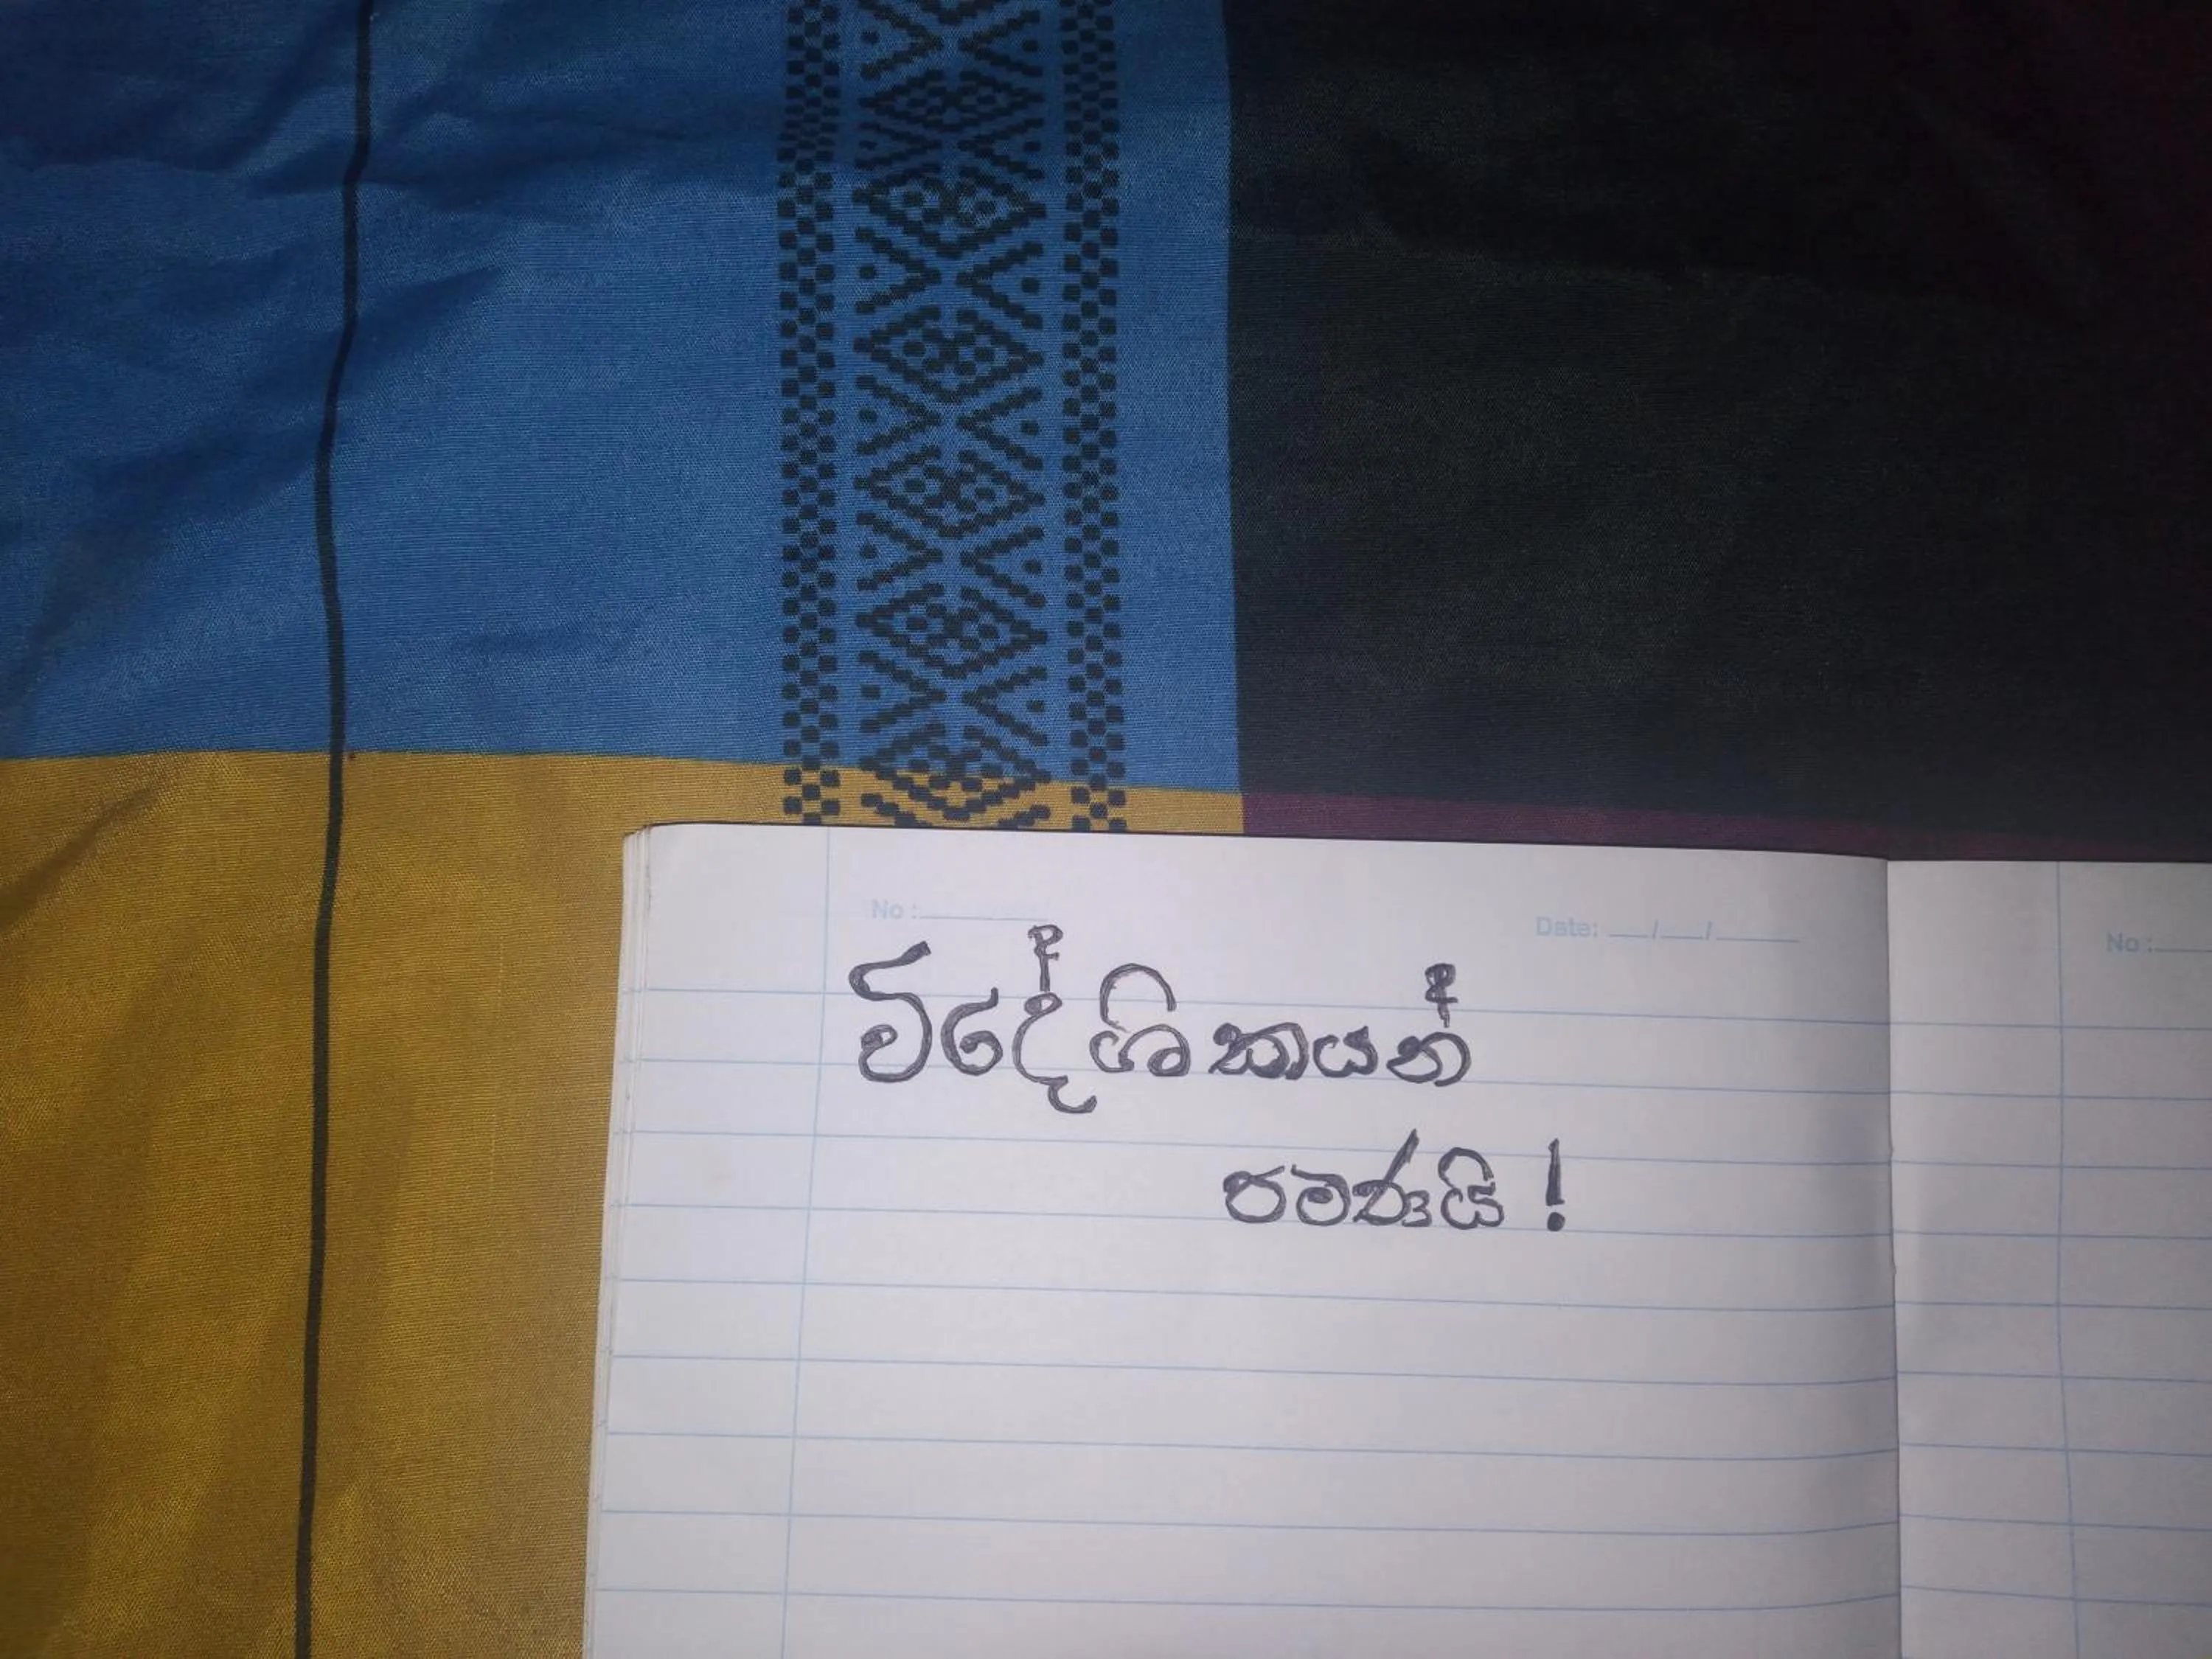 No :
Date: __/__/____
No :
විදේශිකයන්
පමණයි !